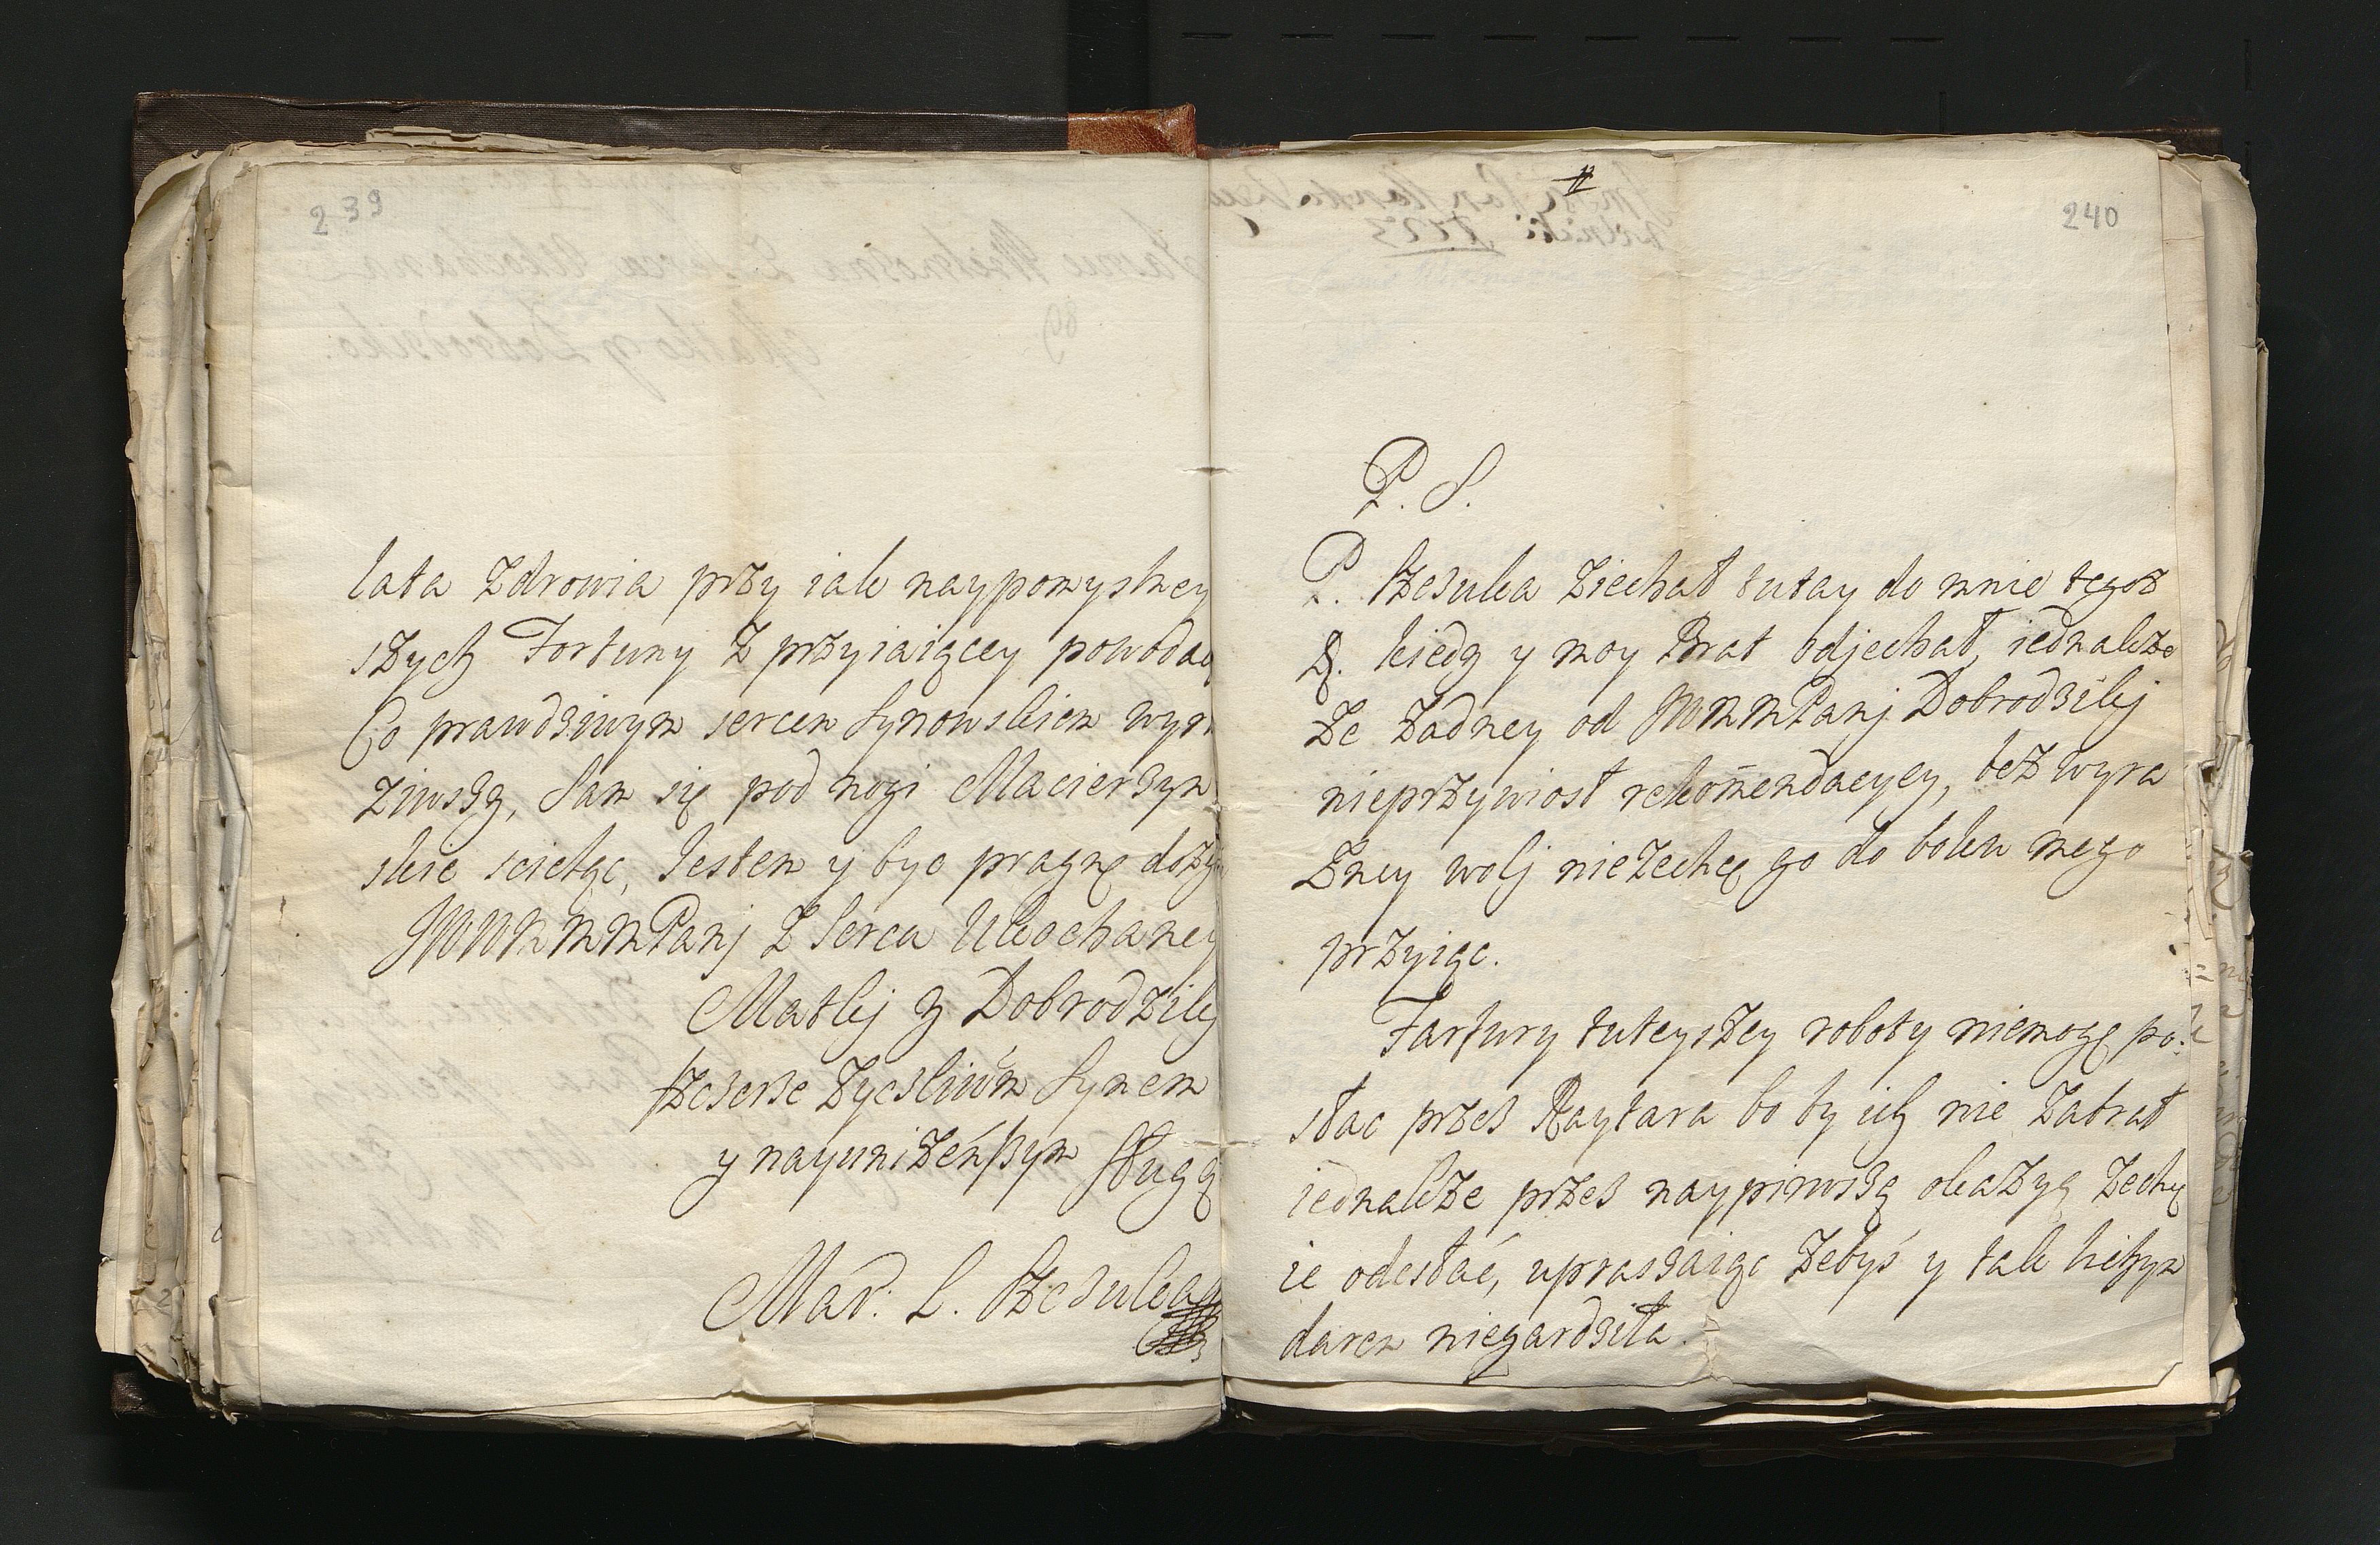 239
lata Zdrowia przy iak naypomyslney
szych Fortuny Z przyiaiącey powodac
Co prawdziwym sercem Synowskiem wyra
Ziwszy, Sam się pod nogi Macierzyn
skie scieląc, Jestem y byc pragnę dozy
JWWMMMPanj Z Serca Ukochaney
Matkj y Dobrodzikj
Szczerze Zyczliwym Synem
y nayunizenszym Sługą
Mar: L.
240
P. S.
P. ziechał tutay do mnie tegoz
D. kiedy y moy Brat odjechał, iednakze
Ze Zadney od JWMMPanj Dobrodzikj
nieprzywiosł rekom̄endacyey, bez wyra
Zney wolj nieZechcę go do boku mego
przyiąc.
Farfury tuteyszey roboty niemogę po:
słac przes Raytara bo by ich nie Zabrał
iednakze przes naypirwszą okazyą Zechcę
ie odesłać, upraszaiąc Zebyś y tak lichym
darem niegardziła.